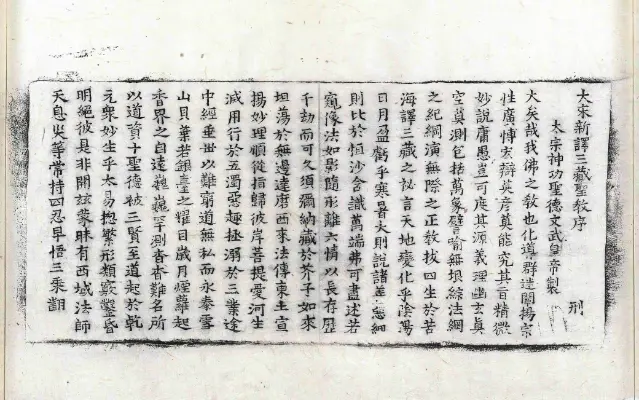 大宋新譯三藏聖教序　刑
太宗神功聖德文武皇帝製
大矣哉我佛之教也化導群迷闡揚宗
性廣博宏辯英彥莫能究其旨精微
妙說庸愚豈可度其源義理幽玄真
空莫測包括萬象譬喻無垠綜法網
之紀綱演無際之正教拔四生於苦
海譯三藏之祕言天地變化乎陰陽
日月盈虧乎寒暑大則說諸善惡細
則比於恒沙含識萬端弗可盡述若
窺像法如影隨形離六情以長存歷
千劫而可久須彌納藏於芥子如來
坦蕩於無邊達磨西來法傳東土宣
揚妙理順從指歸彼岸菩提愛河生
滅用行於五濁惡趣拯溺於三業途
中經垂世以難窮道無私而永泰雪
山貝葉若銀臺之耀目歲月煙蘿起
香界之自遠巍巍罕測杳杳難名所
以道資十聖德被三賢至道起於乾
元衆妙生乎太易揔繁形類竅鑿昏
明絕彼是非開玆蒙昧有西域法師
天息災等常持四忍早悟三乘翻